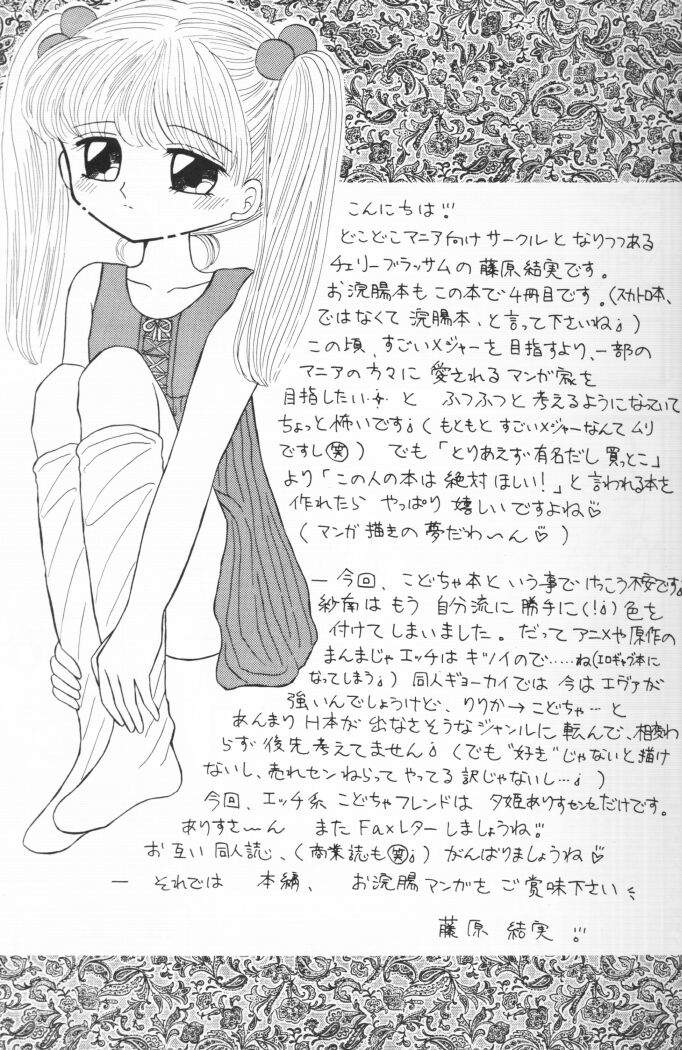 こんにちは!!
どこどこマニア向けサークルとなりつつある
チェリーブラッサムの藤原結実です。
お浣腸本もこの本で4冊目です。(スカトロ本、
ではなくて 浣腸本、と言って下さいね)
この頃、すごいメジャーを目指すより、一部の
マニアの方々に 愛されるマンガ家を
目指したい と ふつふつと考えるようになっていて
ちょっと怖いです(もともと すごいメジャーなんてムリ
ですし(笑)) でも「とりあえず有名だし 買っとこ」
より「この人の本は絶対ほしい!」と言われる本を
作れたら やっぱり 嬉しいですよね♡
(マンガ描きの夢だわ〜ん♡)
— 今回、こどちゃ本という事でけっこう不安です。
紗南はもう 自分流に勝手に(!)色を
付けてしまいました。だってアニメや原作の
まんまじゃエッチはキツイので……ね(エロギャグ本に
なってしまう) 同人ギョーカイでは 今はエヴァが
強いんでしょうけど、りりか→こどちゃ…と
あんまり H本が 出なさそうなジャンルに 転んで、相変わ
らず 後先考えてません(でも"好き"じゃないと描け
ないし、売れセンねらってやってる 訳じゃないし…)
今回、エッチ系 こどちゃフレンドは 夕姫ありすセンセだけです。
ありすさ〜ん また Faxレターしましょうね!!
お互い 同人誌、(商業誌も(笑)) がんばりましょうね♡
— それでは 本編、 お浣腸マンガを ご賞味下さい
藤原 結実 !!